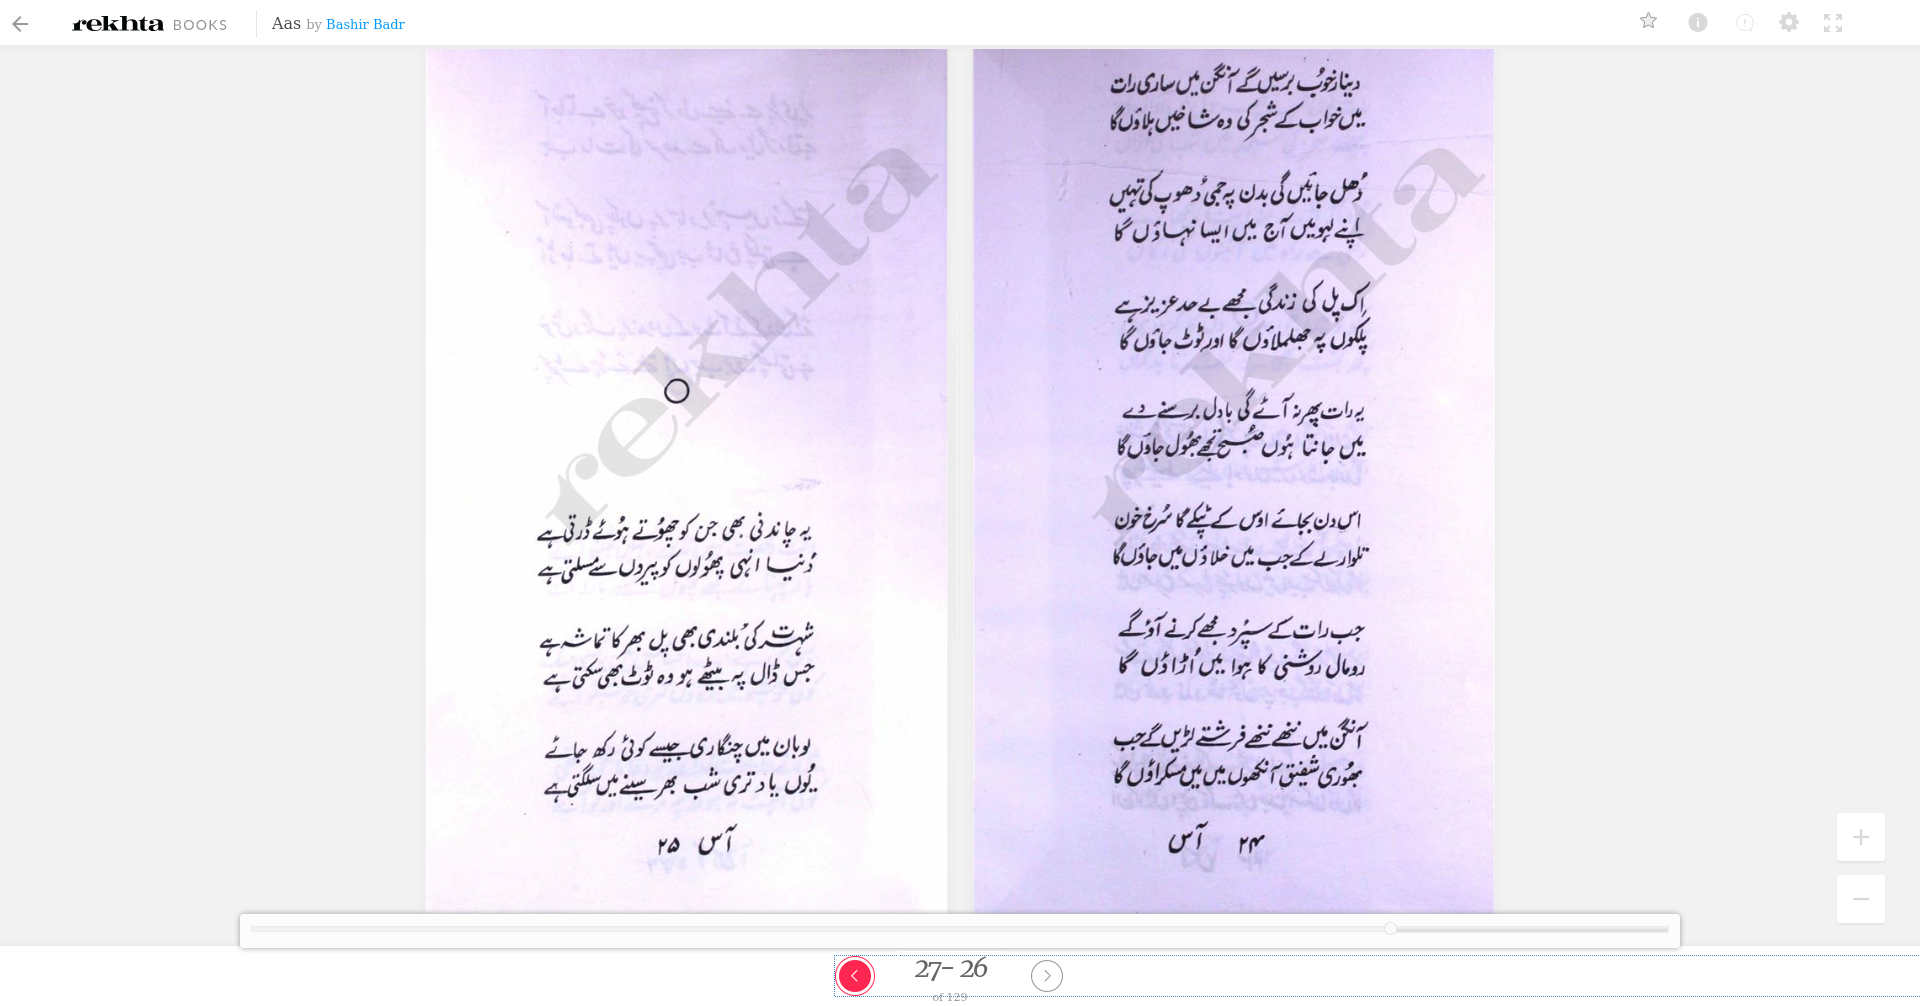 rekhta BOOKS Aas by Bashir Badr
دینار خوب برسیں گے آنگن میں ساری رات
میں خواب کے شجر کی وہ شاخیں ہلاؤں گا
دُھل جائیں گی بدن پہ جمی دھوپ کی تہیں
اپنے لہو میں آج میں ایسا نہاؤں گا
اِک پل کی زندگی مجھے بے حد عزیز ہے
پلکوں پہ جھلملاؤں گا اور ٹوٹ جاؤں گا
یہ رات پھر نہ آئے گی بادل برسنے دے
میں جانتا ہُوں صُبح تجھے بھُول جاؤں گا
اس دن بجائے اوس کے ٹپکے گا سُرخ خون
تلوار لے کے جب میں خلاؤں میں جاؤں گا
جب رات کے سپُرد مجھے کرنے آؤ گے
رومال روشنی کا ہوا میں اُڑاؤں گا
آنگن میں ننھے ننھے فرشتے لڑیں گے جب
بھُوری شفیق آنکھوں میں میں مسکراؤں گا
۲۴ آس
یہ چاندنی بھی جن کو چھُوتے ہُوئے ڈرتی ہے
دُنیا انہی پھُولوں کو پیروں سے مسلتی ہے
شہرت کی بلندی بھی پل بھر کا تماشہ ہے
جس ڈال پہ بیٹھے ہو وہ ٹوٹ بھی سکتی ہے
لوبان میں چنگاری جیسے کوئی رکھ جائے
یُوں یاد تری شب بھر سینے میں سلگتی ہے
آس ۲۵
rekhta
rekhta
27- 26
of 129